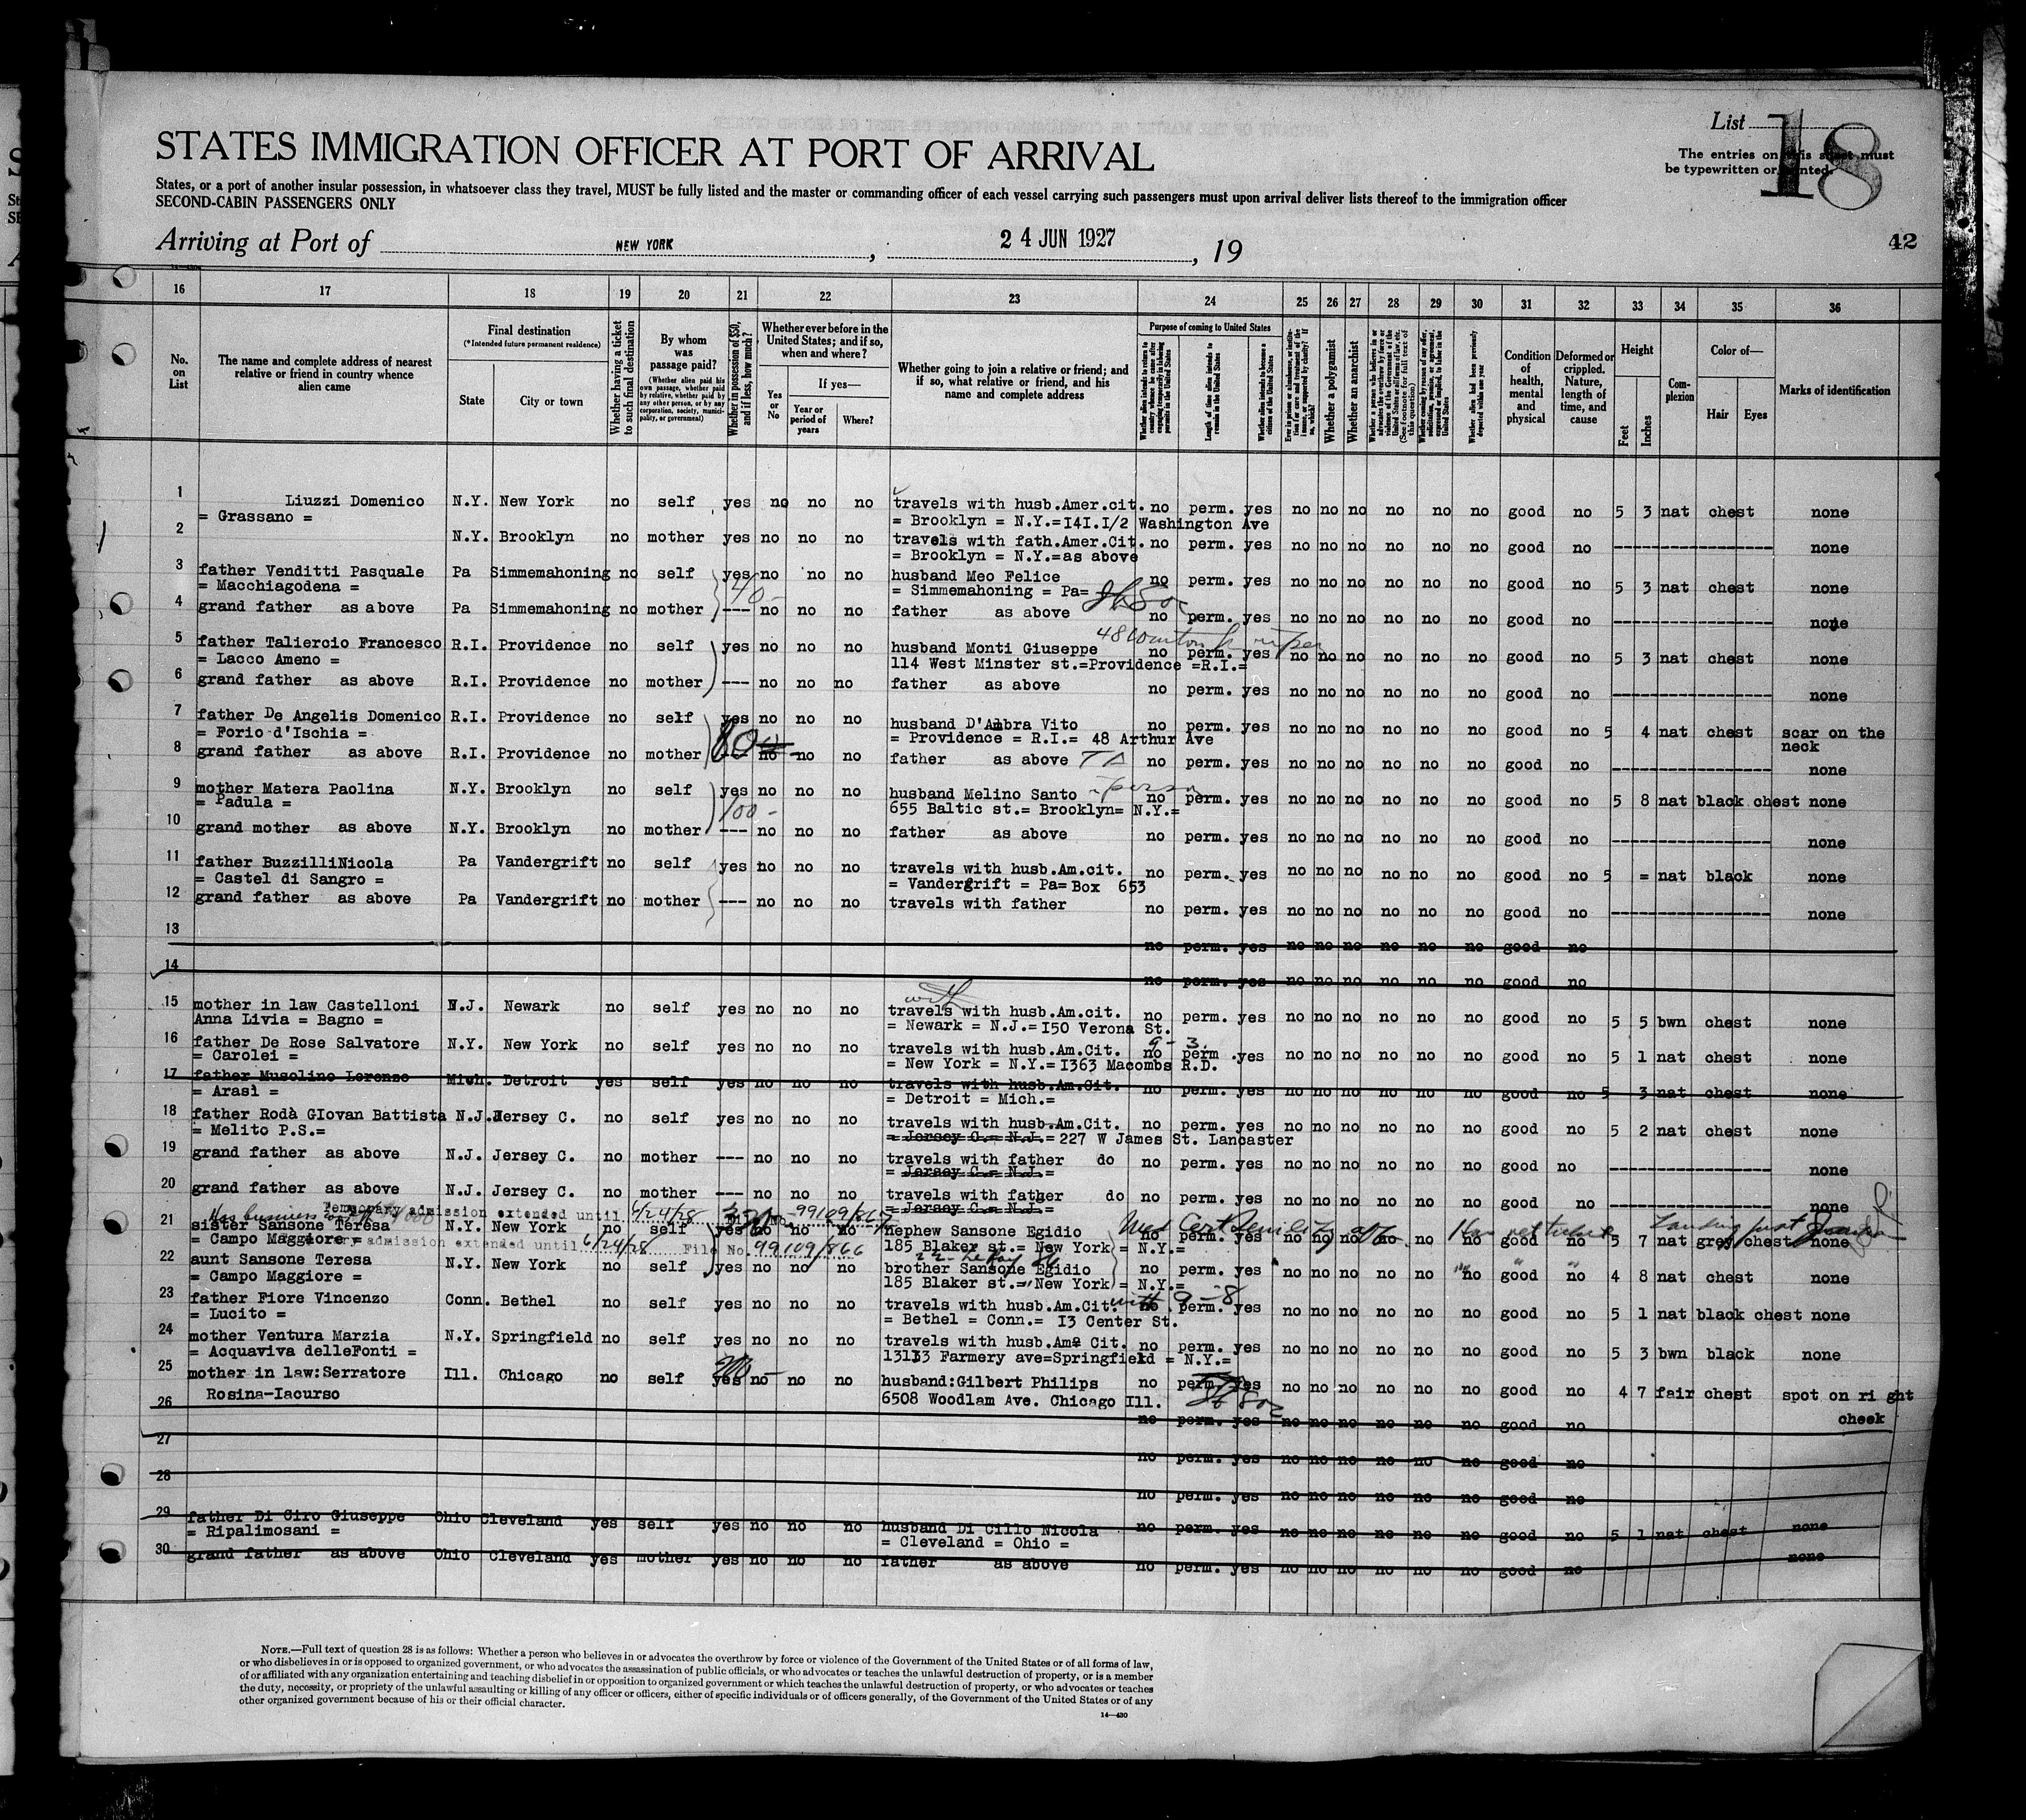 List
18
The entries on this sheet must
be typewritten or printed.
STATES IMMIGRATION OFFICER AT PORT OF ARRIVAL
States, or a port of another insular possession, in whatsoever class they travel, MUST be fully listed and the master or commanding officer of each vessel carrying such passengers must upon arrival deliver lists thereof to the immigration officer
SECOND-CABIN PASSENGERS ONLY
Arriving at Port of NEW YORK, 24 JUN 1927, 19
42
16 17 18 19 20 21 22 23 24 25 26 27 28 29 30 31 32 33 34 35 36
No. on List
The name and complete address of nearest relative or friend in country whence alien came
Final destination
(*Intended future permanent residence)
State
City or town
Whether having a ticket to such final destination
By whom was passage paid?
(Whether alien paid his own passage, whether paid by relative, whether paid by any other person, or by any corporation, society, municipality, or government)
Whether in possession of $50, and if less, how much?
Whether ever before in the United States; and if so, when and where?
Yes or No
If yes—
Year or period of years
Where?
Whether going to join a relative or friend; and if so, what relative or friend, and his name and complete address
Purpose of coming to United States
Length of time alien intends to remain in the United States
Whether alien intends to become a citizen of the United States
Whether a polygamist
Whether an anarchist
Condition of health, mental and physical
Deformed or crippled. Nature, length of time, and cause
Height
Feet
Inches
Complexion
Color of—
Hair
Eyes
Marks of identification
1 Liuzzi Domenico N.Y. New York no self yes no no no travels with husb.Amer.cit. no perm. yes no no no no no no good no 5 3 nat chest none
= Grassano = = Brooklyn = N.Y.=I4I.I/2 Washington Ave
2 N.Y. Brooklyn no mother yes no no no travels with fath.Amer.Cit. no perm. yes no no no no no no good no ------------------ none
= Brooklyn = N.Y.=as above
3 father Venditti Pasquale Pa Simmemahoning no self yes no no no husband Meo Felice no perm. yes no no no no no no good no 5 3 nat chest none
= Macchiagodena = 40- = Simmemahoning = Pa=
4 grand father as above Pa Simmemahoning no mother --- no no no father as above no perm. yes no no no no no no good no ------------------ none
5 father Taliercio Francesco R.I. Providence no self yes no no no husband Monti Giuseppe no perm. yes no no no no no no good no 5 3 nat chest none
= Lacco Ameno = 114 West Minster st.=Providence =R.I.=
6 grand father as above R.I. Providence no mother --- no no no father as above no perm. yes no no no no no no good no ------------------ none
7 father De Angelis Domenico R.I. Providence no self yes no no no husband D'Ambra Vito no perm. yes no no no no no no good no 5 4 nat chest scar on the neck
= Forio d'Ischia = = Providence = R.I.= 48 Arthur Ave
8 grand father as above R.I. Providence no mother no no no father as above no perm. yes no no no no no no good no ------------------ none
9 mother Matera Paolina N.Y. Brooklyn no self yes no no no husband Melino Santo no perm. yes no no no no no no good no 5 8 nat black chest none
= Padula = 100- 655 Baltic st.= Brooklyn= N.Y.=
10 grand mother as above N.Y. Brooklyn no mother --- no no no father as above no perm. yes no no no no no no good no ------------------ none
11 father BuzzilliNicola Pa Vandergrift no self yes no no no travels with husb.Am.cit. no perm. yes no no no no no no good no 5 = nat black none
= Castel di Sangro = = Vandergrift = Pa= Box 653
12 grand father as above Pa Vandergrift no mother --- no no no travels with father no perm. yes no no no no no no good no ------------------ none
13 no perm. yes no no no no no no good no
14 no perm. yes no no no no no no good no
15 mother in law Castelloni N.J. Newark no self yes no no no travels with husb.Am.cit. no perm. yes no no no no no no good no 5 5 bwn chest none
Anna Livia = Bagno = = Newark = N.J.=I50 Verona St.
16 father De Rose Salvatore N.Y. New York no self yes no no no travels with husb.Am.Cit. no perm. yes no no no no no no good no 5 1 nat chest none
= Carolei = = New York = N.Y.=I363 Macombs R.D.
17 father Musolino Lorenzo Mich. Detroit yes self yes no no no travels with husb.Am.Cit. no perm. yes no no no no no no good no 5 3 nat chest none
= Arasi = = Detroit = Mich.=
18 father Rodà GIovan Battista N.J. Jersey C. no self yes no no no travels with husb.Am.Cit. no perm. yes no no no no no no good no 5 2 nat chest none
= Melito P.S.= = Jersey C.= N.J.= 227 W James St. Lancaster
19 grand father as above N.J. Jersey C. no mother --- no no no travels with father do no perm. yes no no no no no no good no ------------------ none
= Jersey C.= N.J.=
20 grand father as above N.J. Jersey C. no mother --- no no no travels with father do no perm. yes no no no no no no good no ------------------ none
= Jersey C.= N.J.=
Temporary admission extended until 6/24/28 File No. 99109/867
21 sister Sansone Teresa N.Y. New York no self yes no no no nephew Sansone Egidio no perm. yes no no no no no no good no 5 7 nat grey/chest none
= Campo Maggiore = 185 Blaker st.= New York = N.Y.=
admission extended until 6/24/28 File No. 99109/866
22 aunt Sansone Teresa N.Y. New York no self yes no no no brother Sansone Egidio no perm. yes no no no no no no good no 4 8 nat chest none
= Campo Maggiore = 185 Blaker st.= New York = N.Y.=
23 father Fiore Vincenzo Conn. Bethel no self yes no no no travels with husb.Am.Cit. no perm. yes no no no no no no good no 5 1 nat black chest none
= Lucito = = Bethel = Conn.= I3 Center St.
24 mother Ventura Marzia N.Y. Springfield no self yes no no no travels with husb.Am. Cit. no perm. yes no no no no no no good no 5 3 bwn black none
= Acquaviva delleFonti = 13133 Farmery ave=Springfield = N.Y.=
25 mother in law:Serratore Ill. Chicago no self yes no no no husband:Gilbert Philips no perm. yes no no no no no no good no 4 7 fair chest spot on ri ght cheek
Rosina-Iacurso 6508 Woodlam Ave. Chicago Ill.
26 no perm. yes no no no no no no good no
27 no perm. yes no no no no no no good no
28 no perm. yes no no no no no no good no
29 father Di Ciro Giuseppe Ohio Cleveland yes self yes no no no husband Di Cillo Nicola no perm. yes no no no no no no good no 5 1 nat chest none
= Ripalimosani = = Cleveland = Ohio =
30 grand father as above Ohio Cleveland yes mother yes no no no father as above no perm. yes no no no no no no good no none
NOTE.—Full text of question 28 is as follows: Whether a person who believes in or advocates the overthrow by force or violence of the Government of the United States or of all forms of law,
or who disbelieves in or is opposed to organized government, or who advocates the assassination of public officials, or who advocates or teaches the unlawful destruction of property, or is a member
of or affiliated with any organization entertaining and teaching disbelief in or opposition to organized government or which teaches the unlawful destruction of property, or who advocates or teaches
the duty, necessity, or propriety of the unlawful assaulting or killing of any officer or officers, either of specific individuals or of officers generally, of the Government of the United States or of any
other organized government because of his or their official character.
14—430